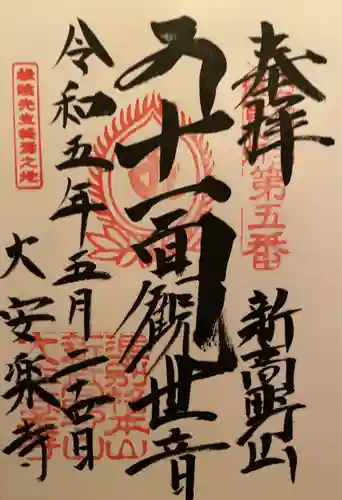 奉拝
第五番
新高野山
十一面観世音
令和五年五月二十四日
大安楽寺
松陰先生終焉之地